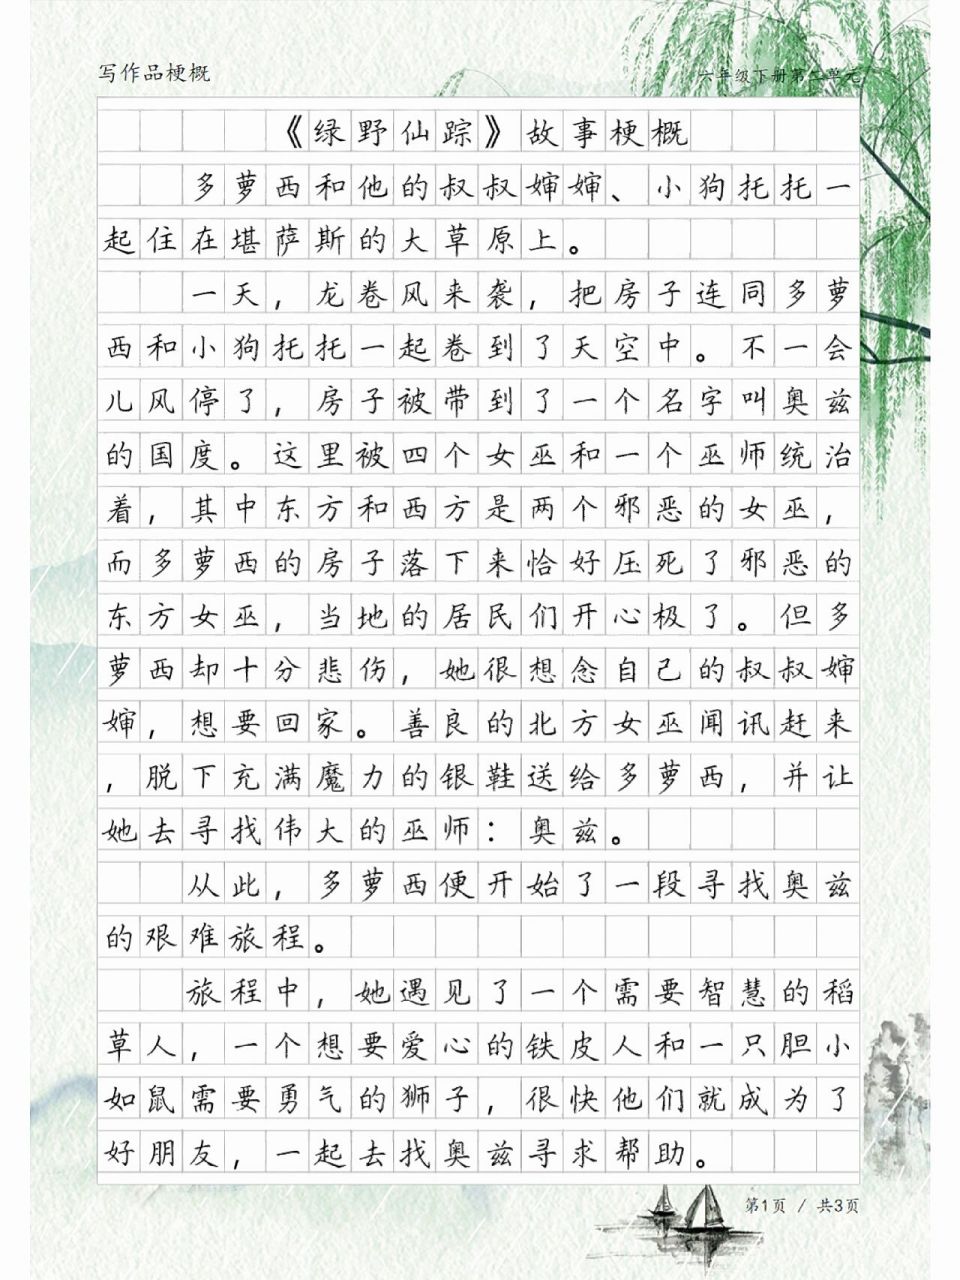 写作品梗概
六年级下册第二单元
《绿野仙踪》故事梗概
多萝西和他的叔叔婶婶、小狗托托一
起住在堪萨斯的大草原上。
一天，龙卷风来袭，把房子连同多萝
西和小狗托托一起卷到了天空中。不一会
儿风停了，房子被带到了一个名字叫奥兹
的国度。这里被四个女巫和一个巫师统治
着，其中东方和西方是两个邪恶的女巫，
而多萝西的房子落下来恰好压死了邪恶的
东方女巫，当地的居民们开心极了。但多
萝西却十分悲伤，她很想念自己的叔叔婶
婶，想要回家。善良的北方女巫闻讯赶来
，脱下充满魔力的银鞋送给多萝西，并让
她去寻找伟大的巫师：奥兹。
从此，多萝西便开始了一段寻找奥兹
的艰难旅程。
旅程中，她遇见了一个需要智慧的稻
草人，一个想要爱心的铁皮人和一只胆小
如鼠需要勇气的狮子，很快他们就成为了
好朋友，一起去找奥兹寻求帮助。
第1页 / 共3页